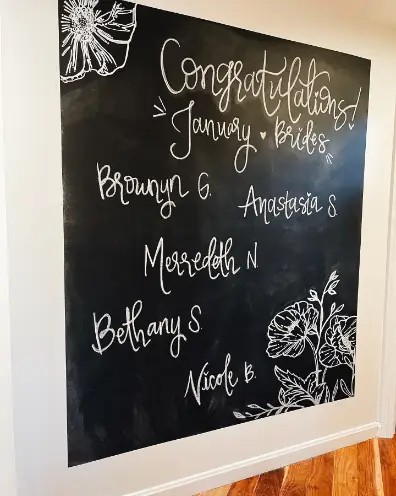 Congratulations!
January ♥ Brides
Brownyn G.
Anastasia S.
Merredeth N.
Bethany S.
Nicole B.